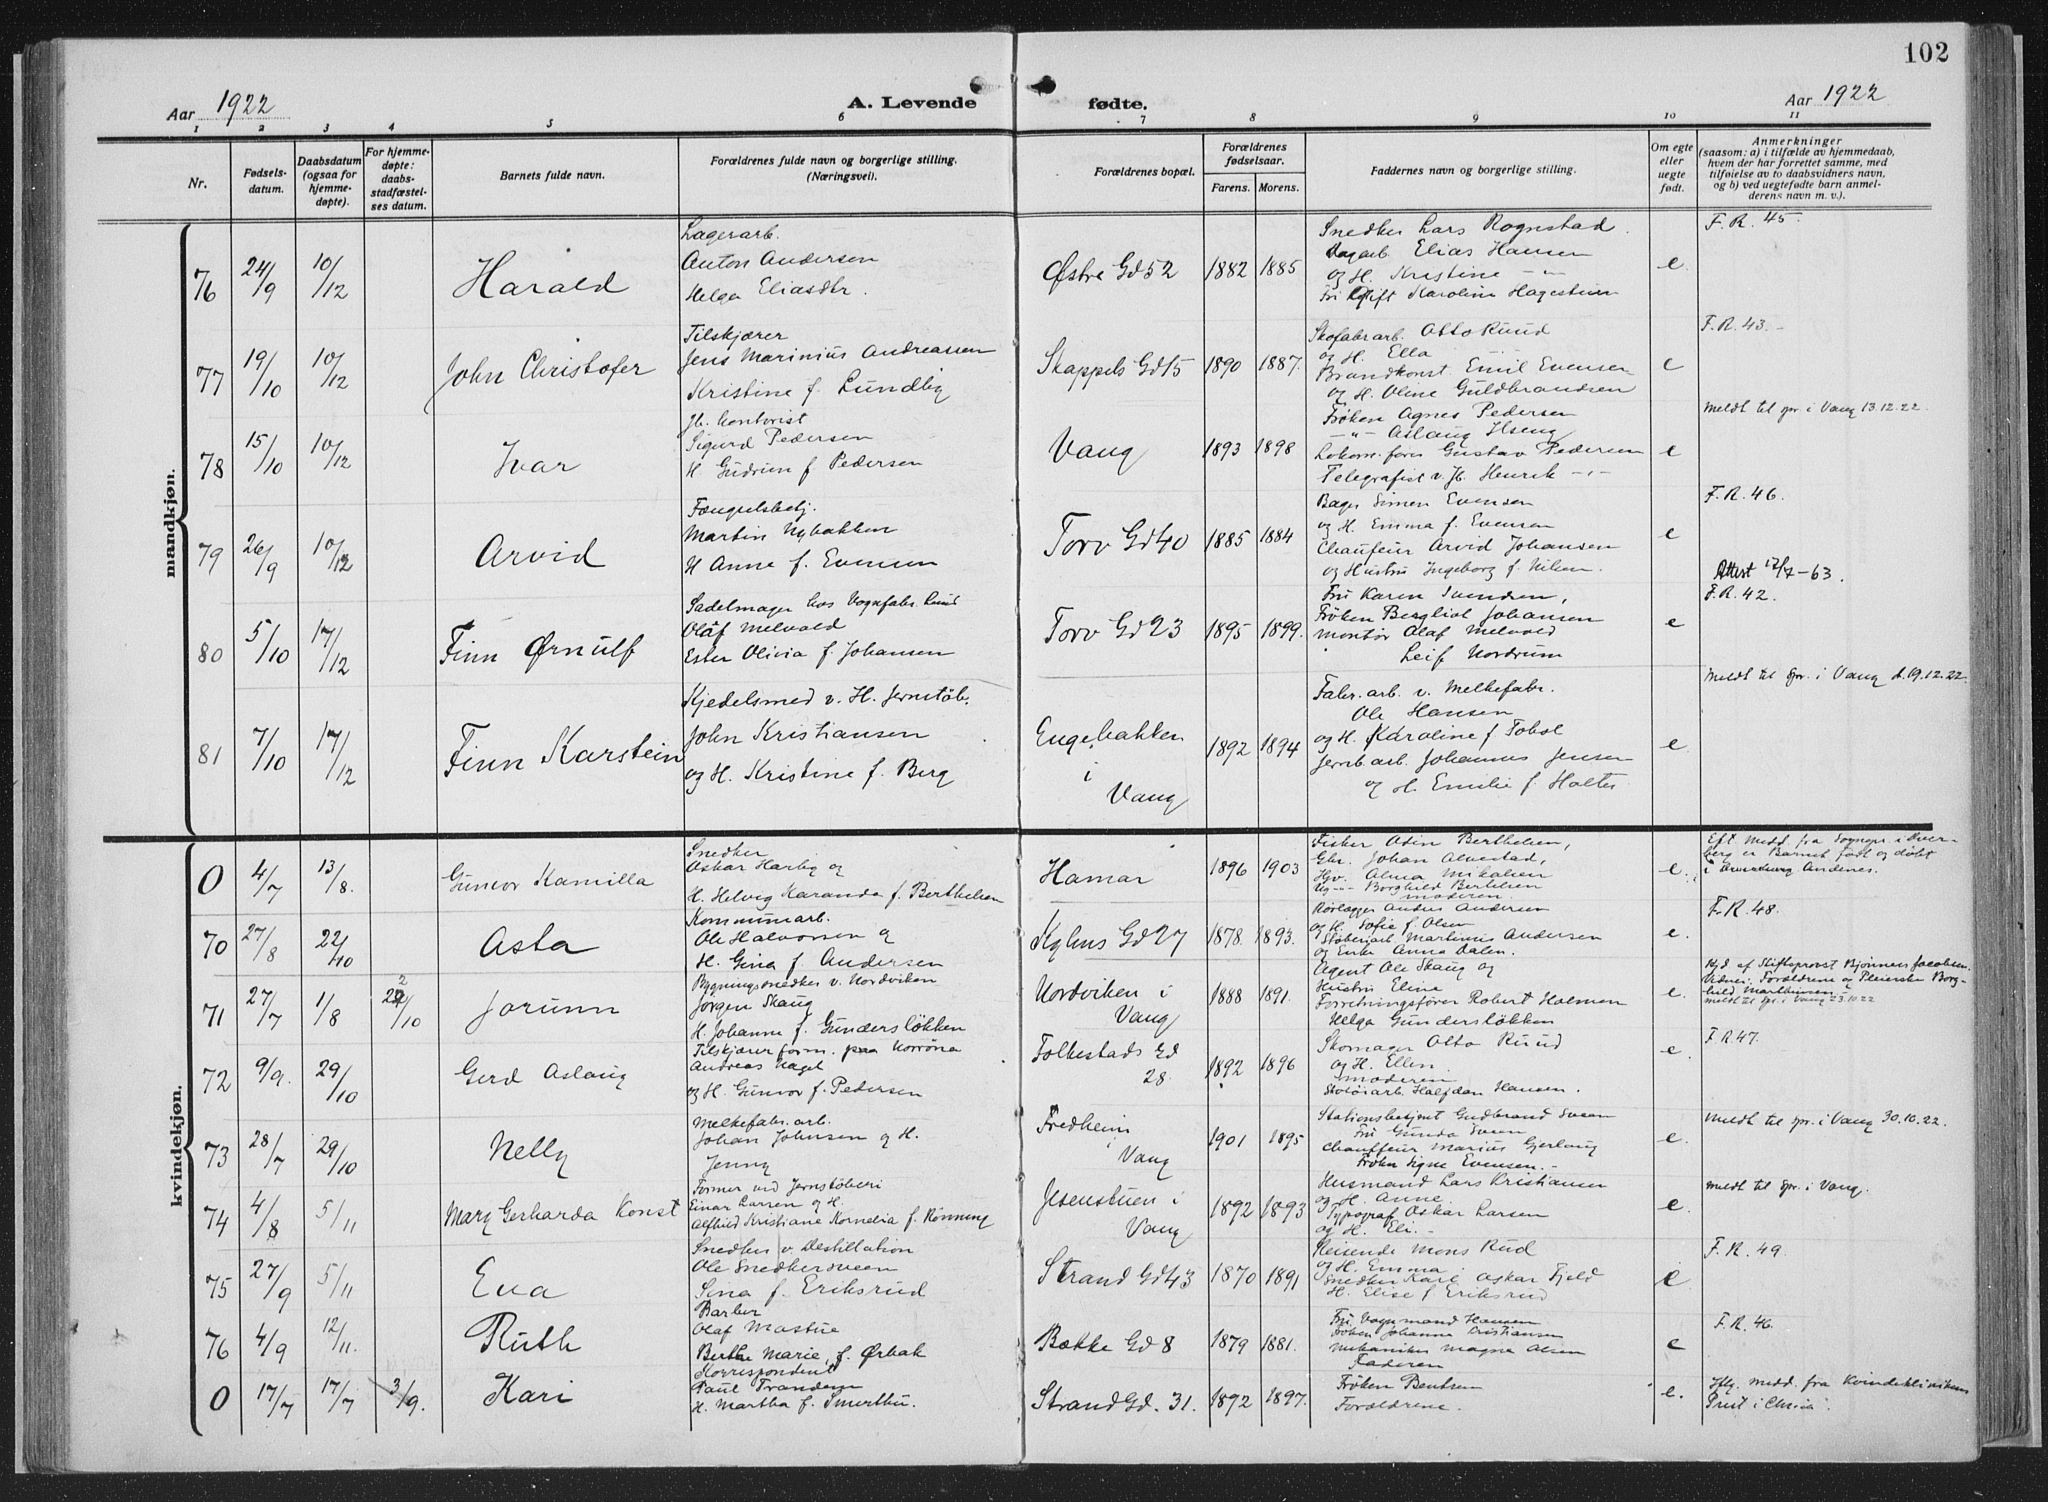 102
Aar 1922
A. Levende fødte.
Aar 1922
1 2 3 4 5 6 7 8 9 10 11
Nr.
Fødsels-
datum.
Daabsdatum
(ogsaa for
hjemme-
døpte).
For hjemme-
døpte:
daabs-
stadfæstel-
ses datum.
Barnets fulde navn.
Forældrenes fulde navn og borgerlige stilling.
(Næringsvei).
Forældrenes bopæl.
Forældrenes
fødselsaar.
Farens. Morens.
Faddernes navn og borgerlige stilling.
Om egte
eller
uegte
født.
Anmerkninger
(saasom: a) i tilfælde av hjemmedaab,
hvem der har forrettet samme, med
tilføielse av to daabsvidners navn,
og b) ved uegtefødte barn anmel-
derens navn m. v.).
mandkjøn.
76 24/9 10/12 Harald
Lagerarb.
Anton Andersen
Helga Eliasdtr.
Østre Gd 52 1882 1885
Snedker Lars Rognstad.
Elias Hansen
og H. Kristine -"-
Karoline Hagestuen
e
F. R. 45.
77 19/10 10/12 John Christofer
Tilskjærer
Jens Marinius Andreassen
Kristine f. Lundby
Skappels Gd 15 1890 1887.
Skofabrarb. Otto Ruud
og H. Ella
Brandkonst Emil Evensen
og H. Oline Guldbrandsen
e
F. R. 43. -
78 15/10 10/12 Ivar
Jb. kontorist
Sigurd Pedersen
H Gudrun f. Pedersen
Vang 1893 1898
Frøken Agnes Pedersen
-"- Aslaug Ilseng
Lokom. fører Gustav Pedersen
Telegrafist v. Jb. Henrik -"-
e
Meldt til spr. i Vang 13.12.22.
79 26/9 10/12 Arvid
Fængselsbetj.
Martin Nybakken
H Anne f. Evensen
Torv Gd 40 1885 1884
Bager Simen Evensen
og H. Emma f. Evensen
Chaufeur Arvid Johansen
og Hustru Ingeborg f. Nilsen.
e
F. R. 46.
Attest 12/7-63.
80 5/10 17/12 Finn Ørnulf
Sadelmager hos Vognfabr. Lund
Olaf Melvold
Ester Olivia f. Johansen
Torv Gd 23 1895 1899.
Fru Karen Svendsen,
Frøken Bergliot Johansen
Montør Olaf Melvold
Leif Nordrum
e
F. R. 42.
81 7/10 17/12 Finn Karstein
Kjedelsmed v. H. Jernstøb.
John Kristiansen
og H. Kristine f. Berg
Engebakken
i
Vang
1892 1894
Fabr. arb. v. Melkefabr.
Ole Hansen
og H. Karoline f Tobol
Jernb. arb. Johannes Jensen
og H. Emilie f. Holter
e
Meldt til spr. i Vang d. 19.12.22.
kvindekjøn.
0 4/7 13/8. Gunvor Kamilla
Snedker
Oskar Harby og
H. Helvig Haranda f. Berthelsen
Hamar 1896 1903
Fisker Odin Berthelsen,
Gbr. Johan Alvestad,
Hgv. Alma Mikalsen
Ug -"- Borghild Bertelsen
moderen
e.
Eft. medd. fra Sognepr. i Dver-
berg er Barnet født og døbt
i Dverberg Andenes.
70 27/8 22/10 Asta
Kommunearb.
Ole Halvorsen og
H. Gina f. Andersen
Kyhns Gd 27 1878. 1893.
Rørlægger Anders Andersen
og H. Sofie f. Olsen
Støberiarb. Martinus Andersen
og Enke Anna Dalen.
e.
F. R. 48.
71 27/7 1/8 22/10 Jorunn
Bygningssnedker v. Nordviken
Jørgen Skaug
H. Johanne f. Gundersløkken
Nordviken i
Vang
1888 1891.
Agent Ole Skaug og
Hustru Eline
Forretningsfører Robert Holmen
Helga Gundersløkken
e.
Hjd. af Stiftsprovst Bjønnes Jacobsen.
Vidner: Forældrene og Pleierske Borg-
hild Marthinsen
Meldt til spr. i Vang 23.10.22
72 9/9. 29/10 Gerd Aslaug
Tilskjærer form. paa Norrøna
Andreas Nagel
og H. Gunvor f. Pedersen
Folkestads Gd
28.
1892 1896
Skomager Otto Ruud
og H. Ellen.
moderen
Halfdan Hansen.
e.
F. R. 47.
73 28/7 29/10 Nelly
Melkefabr. arb.
Johan Johnsen og H.
Jenny
Fredheim
i Vang
1901 1895
Stationsbetjent Gudbrand Sveen
Fru Gunda Sveen
Chauffeur Marius Gjerlaug
Frøken Signe Evensen. -
e.
Meldt til spr. i Vang 30.10.22.
74 4/8 5/11 Mary Gerharda Konst
Former ved Jernstøberi
Einar Larsen og H.
Alfhild Kristiane Kornelia f. Rønning
Jesenstuen i
Vang
1892 1893
Husmand Lars Kristiansen
og H. Anne.
Typograf Oskar Larsen
og H. Eli. -
e.
Meldt til spr. i Vang.
75 27/9 5/11 Eva
Snedker v. Destillation
Ole Snedkersveen
Sina f. Eriksrud
Strand Gd 43 1870 1891
Reisende Mons Rud
og H. Emma.
Snedker Karl Oskar Fjeld
H. Elise f Eriksrud
e
F. R. 49.
76 4/9 12/11. Ruth
Barber
Olaf Mostue
Berthe Marie, f. Ørbak
Bække Gd 8 1879 1881.
Fru Vognmand Hansen
Frøken Johanna Kristiansen
Mekaniker Magne Olsen
Faderen
e
F. R. 46.
0 17/7 17/7 3/9. Kari
Korrespondent
Paul Tranden
H. Martha f. Smerthu.
Strand Gd. 31. 1872 1897.
Frøken Bentsen
Forældrene.
e.
Iflg. medd. fra Kvindeklinikens
Prest i Chria.